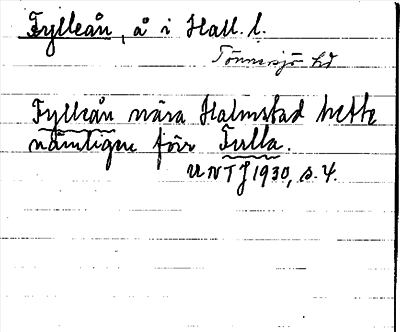 Fylleån, å i Hall. l.
Tönnersjö hd
Fylleån nära Halmstad hette
nämligen förr Fulla.
UNTJ 1930, s. 4.